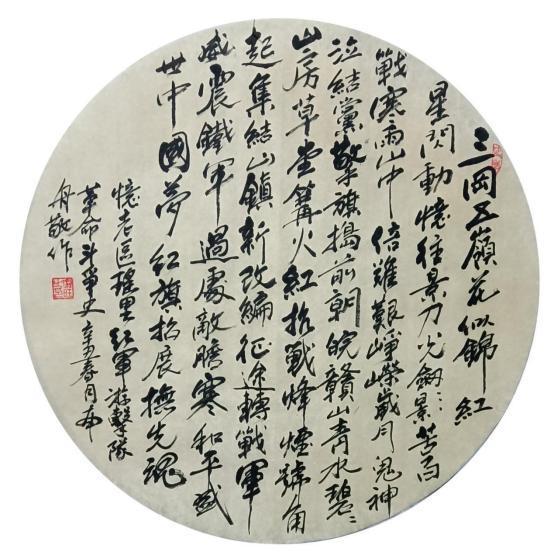 三岡五嶺花似錦紅
星閃動憶往景刀光劍景苦百
戰寒雨山中倍難艱崢嶸歲月鬼神
泣結黨擎旗搗前朝皖贛山青水碧〻
山房草堂篝火紅抗戰烽煙號角
起集結山鎮新改編征途轉戰軍
威震鐵軍過處敵膽寒和平盛
世中國夢紅旗招展撫先魂
憶老區瑤里紅軍游擊隊
革命斗爭史辛丑春月布
舟敬作